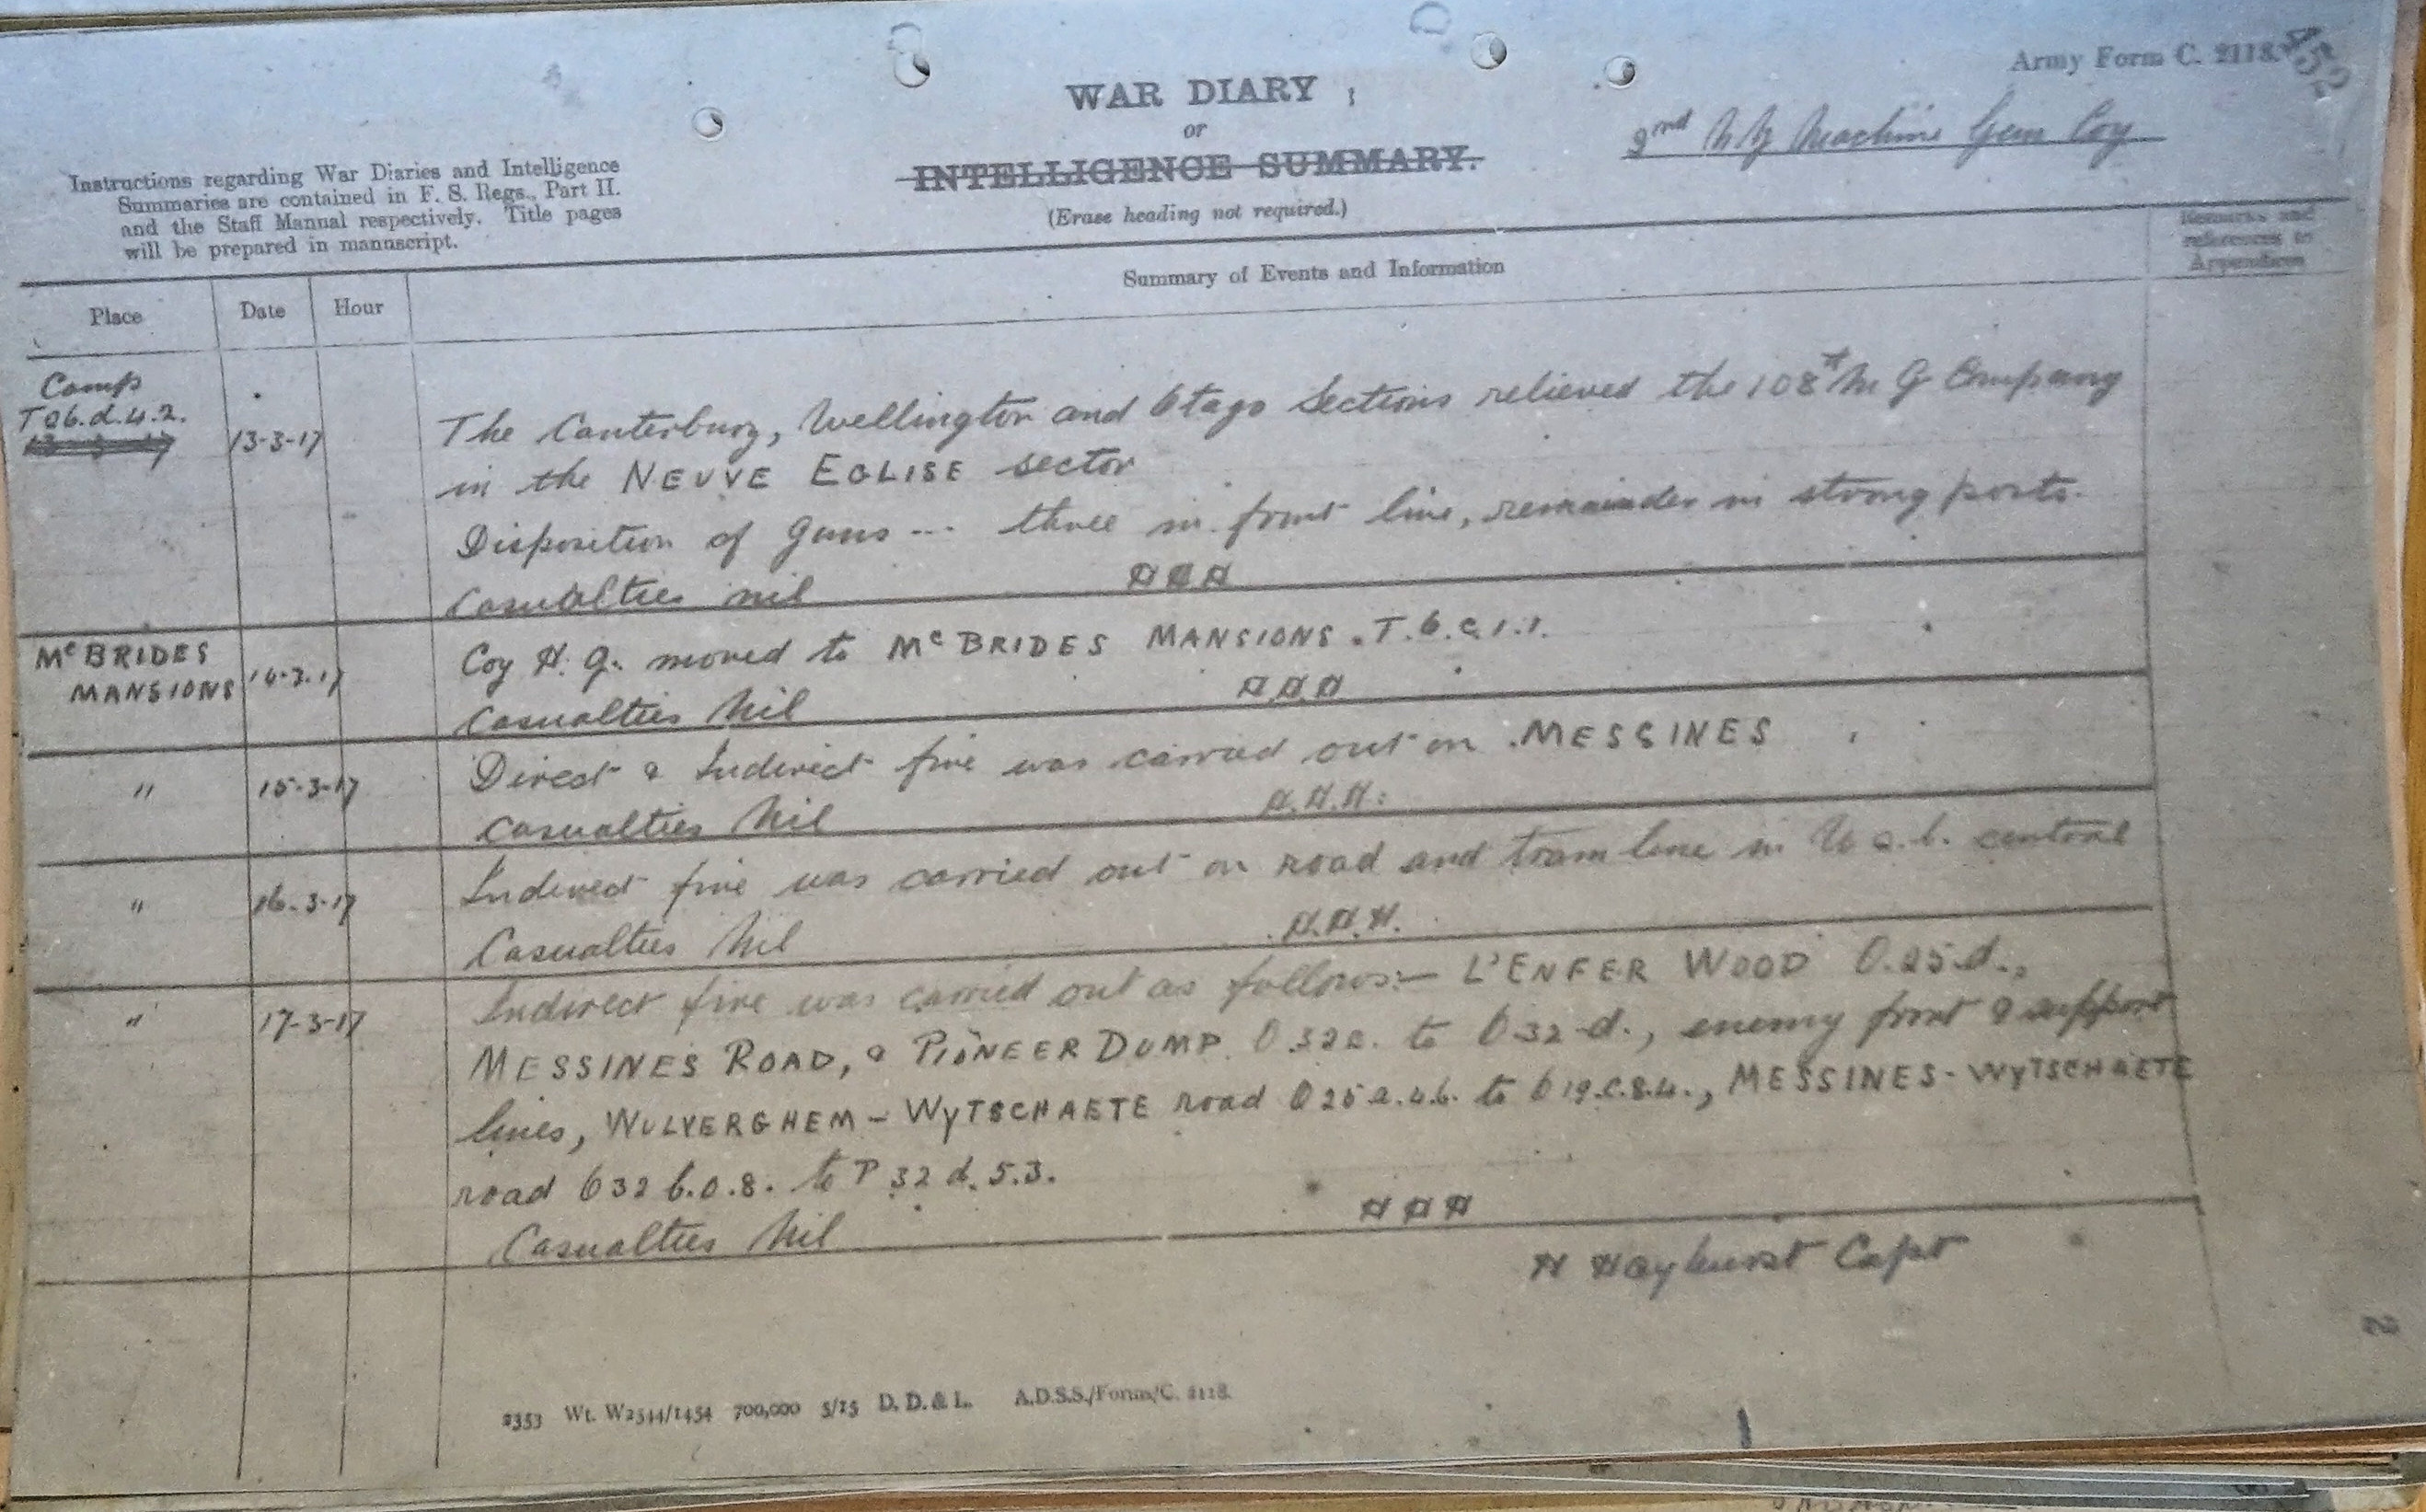 Army Form C. 2118.
452
WAR DIARY
or
INTELLIGENCE SUMMARY.
(Erase heading not required.)
2nd N Z Machine Gun Coy
Instructions regarding War Diaries and Intelligence
Summaries are contained in F. S. Regs., Part II.
and the Staff Manual respectively. Title pages
will be prepared in manuscript.
Place Date Hour Summary of Events and Information
Remarks and
references to
Appendices
Camp
T 26.d.4.2.
13-3-17 The Canterbury, Wellington and Otago Sections relieved the 108th M G Company
in the NEUVE EGLISE sector
Disposition of Guns --- three in front line, remainder in strong posts.
Casualties nil
McBRIDES
MANSIONS 14-3-17 Coy H.Q. moved to McBRIDES MANSIONS. T.6.c.1.1.
Casualties Nil
" 15-3-17 Direct & Indirect fire was carried out on MESSINES
Casualties Nil
" 16-3-17 Indirect fire was carried out on road and tram line in U 2.b. central
Casualties Nil
" 17-3-17 Indirect fire was carried out as follows:- L'ENFER WOOD O.25.d.,
MESSINES ROAD, & PIONEER DUMP O 32c. to O 32-d., enemy front & support
lines, WULVERGHEM - WYTSCHAETE road O 25 a.4.6. to O 19.c.8.4., MESSINES - WYTSCHAETE
road O 32 b.0.8. to P 32 d.5.3.
Casualties Nil
H Hayhurst Capt
2353 Wt. W2544/1454 700,000 5/15 D. D. & L. A.D.S.S./Forms/C. 2118.